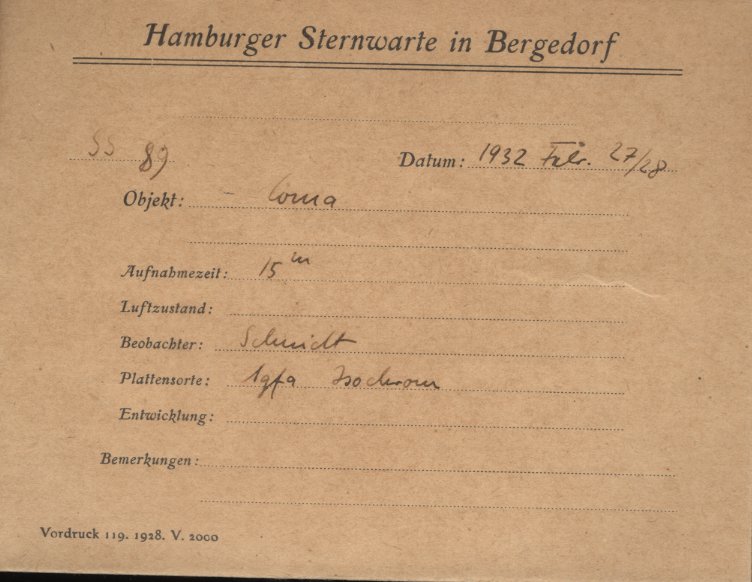 Hamburger Sternwarte in Bergedorf
SS 89
Datum: 1932 Febr. 27/28
Objekt: – Coma
Aufnahmezeit: 15 m
Luftzustand:
Beobachter: Schmidt
Plattensorte: Agfa Isochrom
Entwicklung:
Bemerkungen:
Vordruck 119. 1928. V. 2000